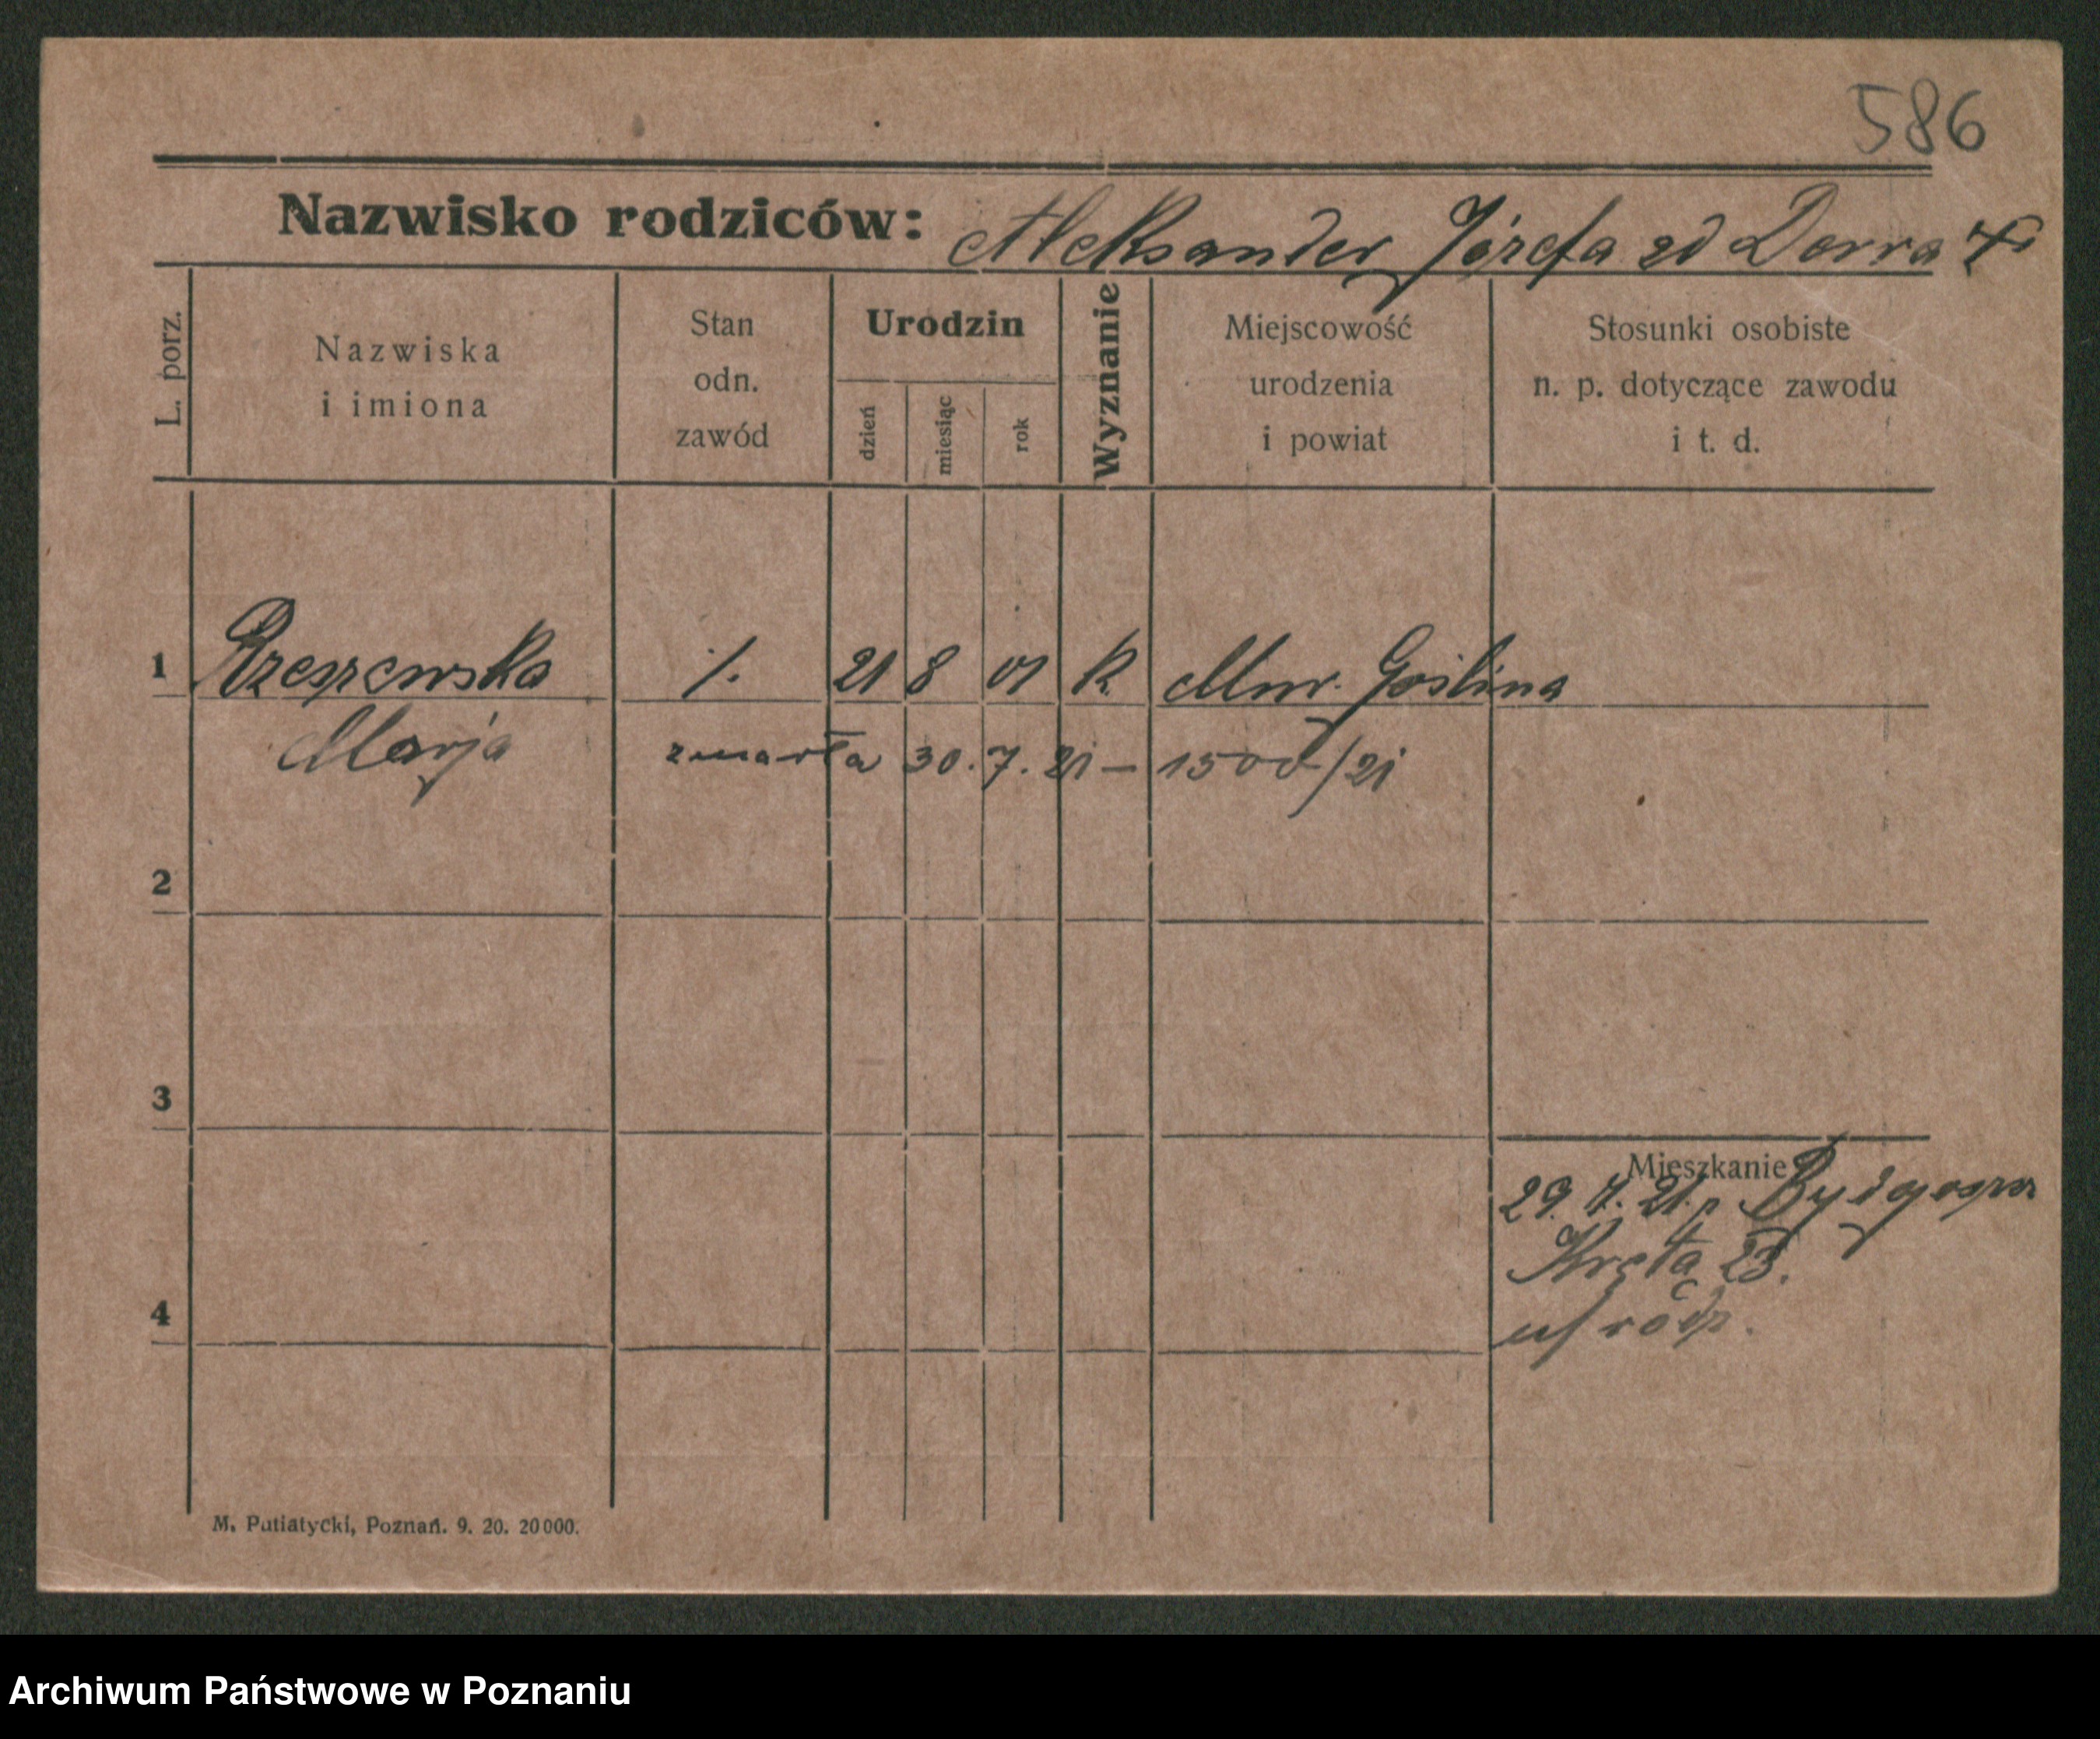 586
Nazwisko rodziców: Aleksander Józefa zd Dorna
L. porz.
Nazwiska
i imiona
Stan
odn.
zawód
Urodzin
dzień
miesiąc
rok
Wyznanie
Miejscowość
urodzenia
i powiat
Stosunki osobiste
n. p. dotyczące zawodu
i t. d.
1 Rzeszewska /. 21 8 01 K. Mur. Goślina
Marja zmarła 30.7.21 – 1500/21
2
3
4
Mieszkanie
29. 7. 21. Bydgoszcz
Kręta 23.
u/
M. Putiatycki, Poznań. 9. 20. 20000.
Archiwum Państwowe w Poznaniu